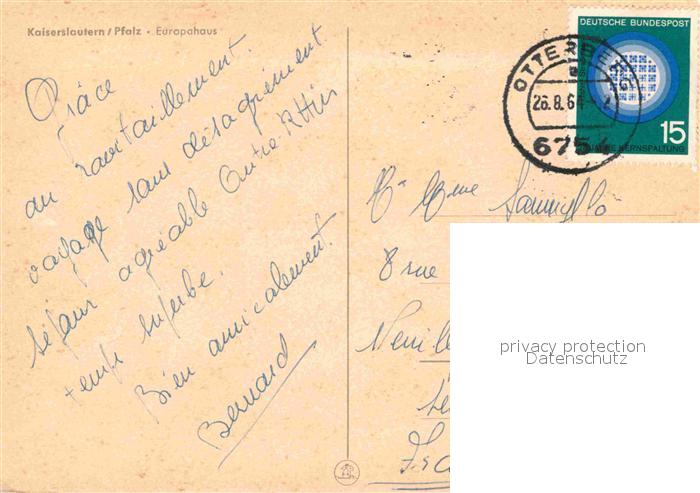 Kaiserslautern / Pfalz · Europahaus
Grâce
au ravitaillement.
voyage sans désagrément
séjour agréable Outre-Rhin
temps superbe.
Bien amicalement.
Bernard
DEUTSCHE BUNDESPOST
15
KERNSPALTUNG
OTTERBERG
26.8.64
6754
Mme
8 rue
privacy protection
Datenschutz